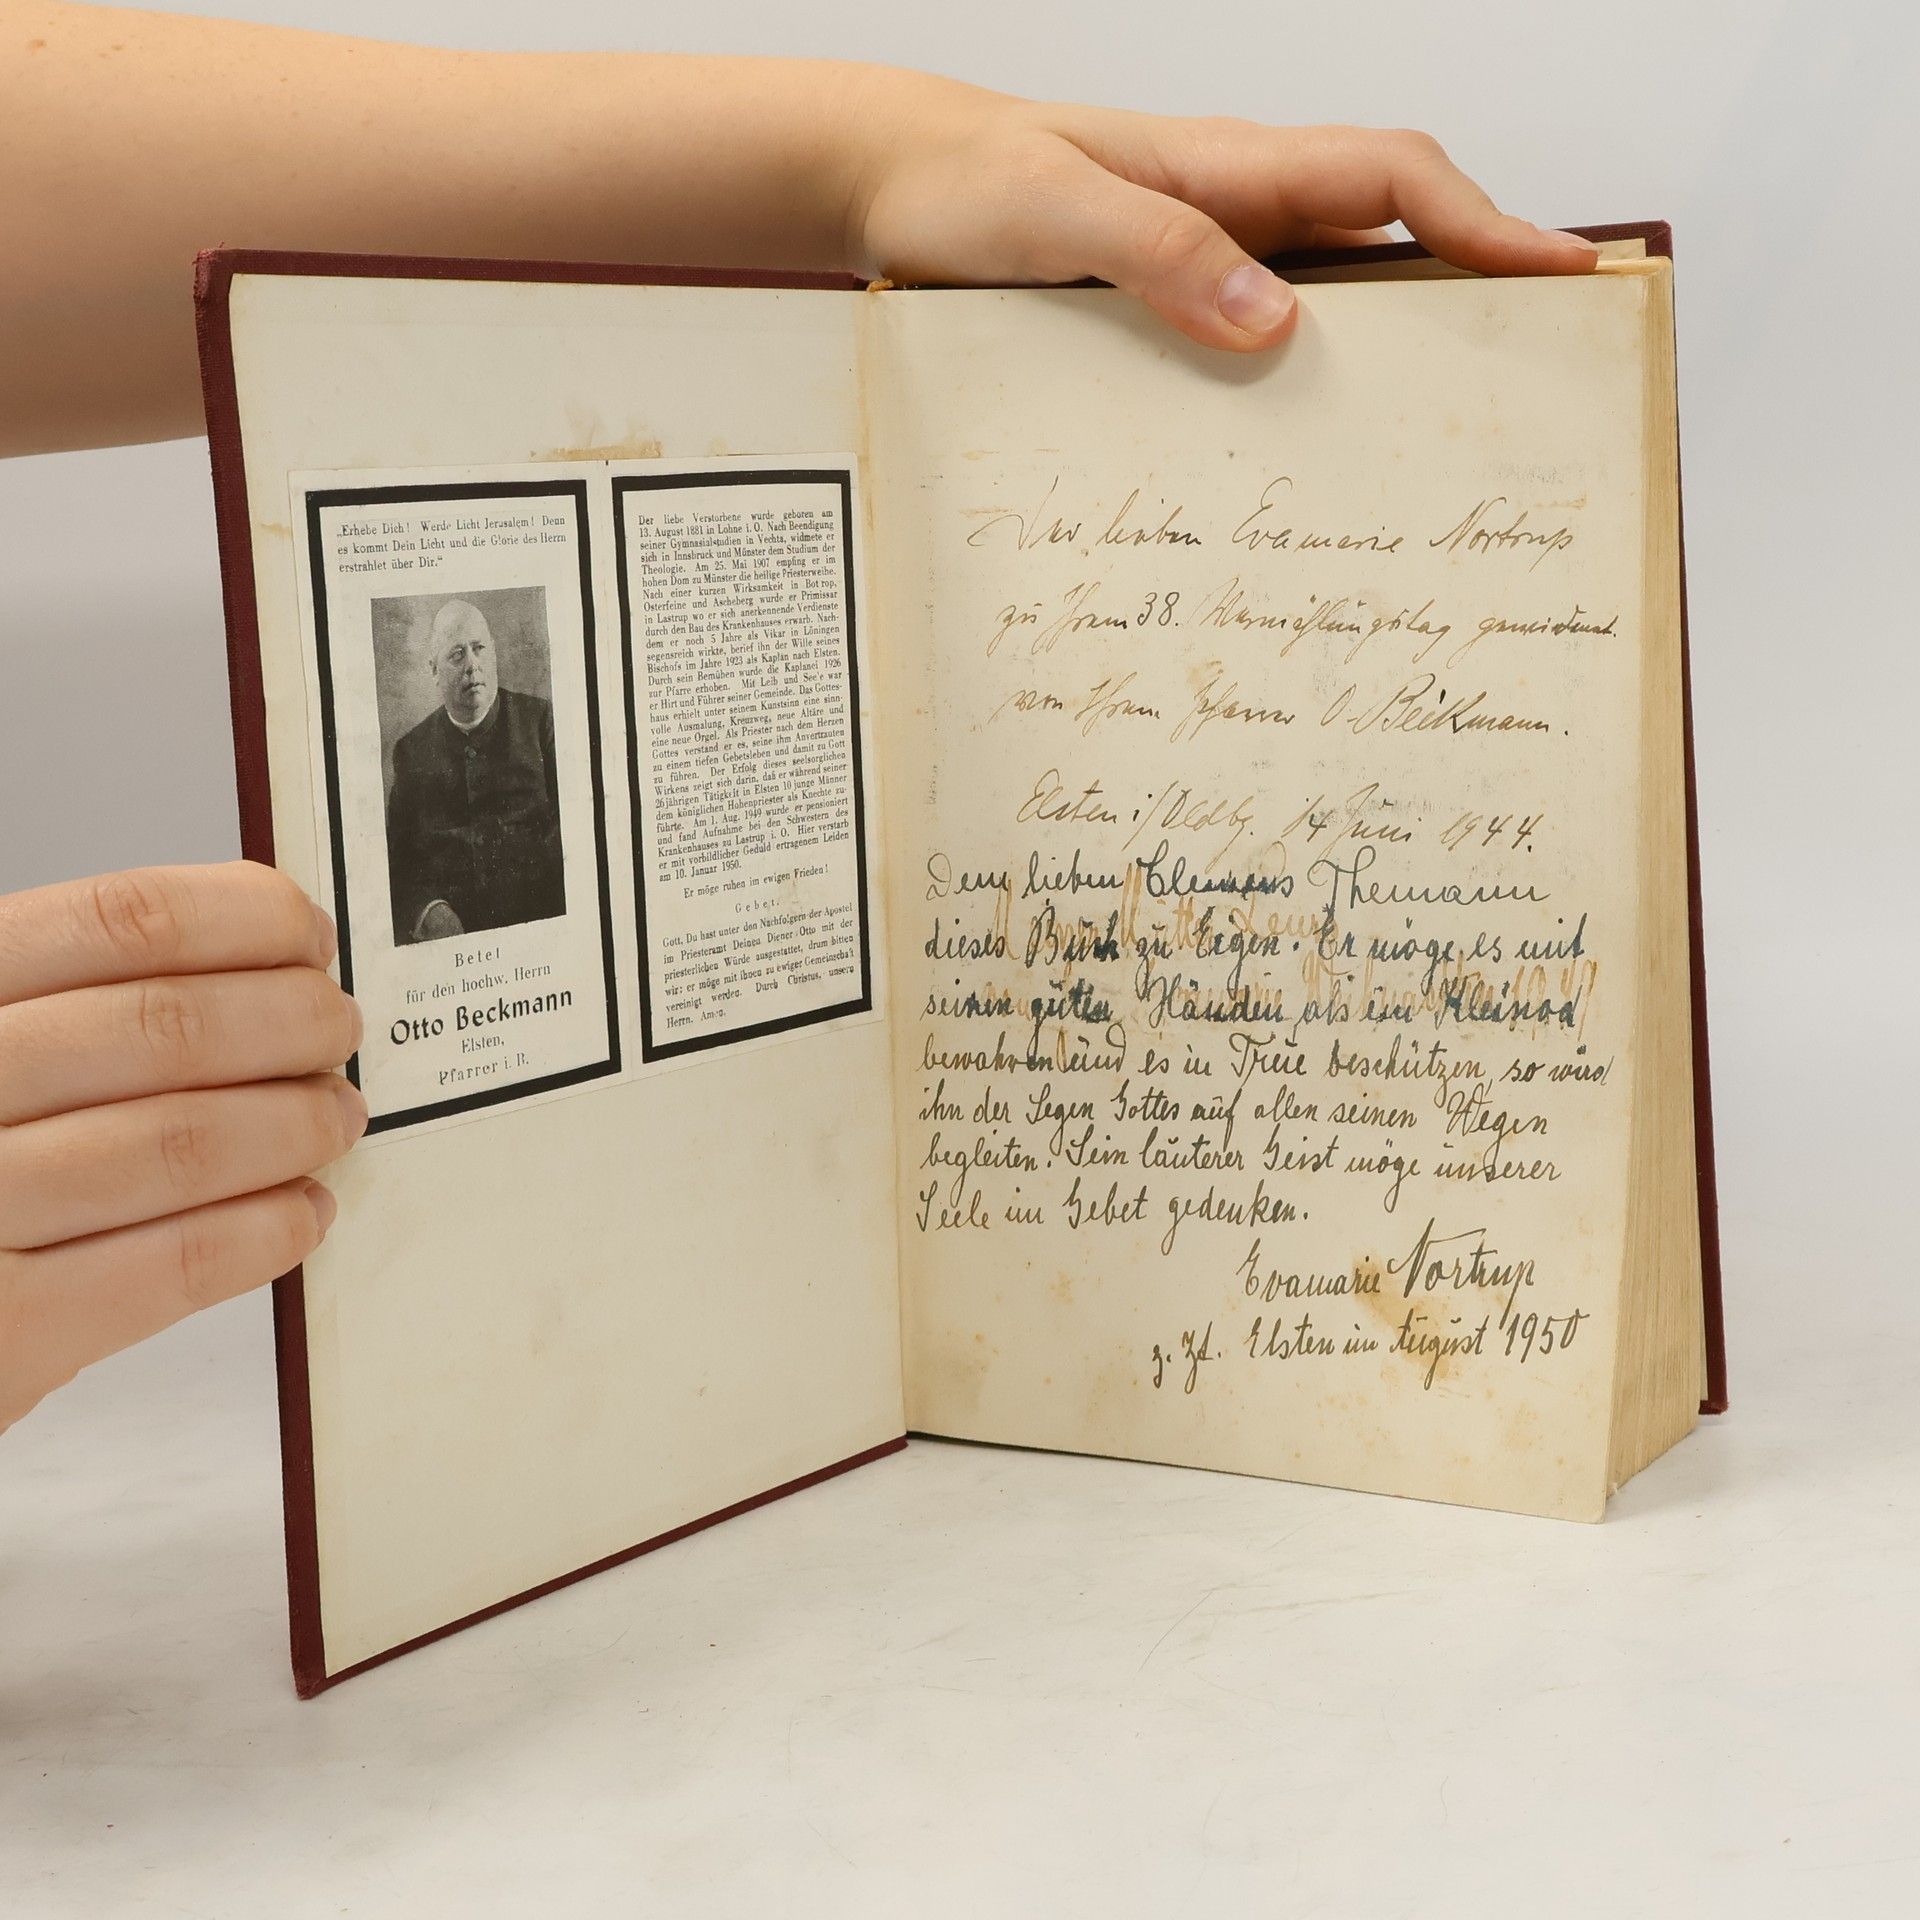 „Erhebe Dich! Werde Licht Jerusalem! Denn
es kommt Dein Licht und die Glorie des Herrn
erstrahlet über Dir.“
Betet
für den hochw. Herrn
Otto Beckmann
Elsten,
Pfarrer i. R.
Der liebe Verstorbene wurde geboren am
13. August 1881 in Lohne i. O. Nach Beendigung
seiner Gymnasialstudien in Vechta, widmete er
sich in Innsbruck und Münster dem Studium der
Theologie. Am 25. Mai 1907 empfing er im
hohen Dom zu Münster die heilige Priesterweihe.
Nach einer kurzen Wirksamkeit in Bot rop,
Osterfeine und Ascheberg wurde er Primissar
in Lastrup wo er sich anerkennende Verdienste
durch den Bau des Krankenhauses erwarb. Nach-
dem er noch 5 Jahre als Vikar in Löningen
segensreich wirkte, berief ihn der Wille seines
Bischofs im Jahre 1923 als Kaplan nach Elsten.
Durch sein Bemühen wurde die Kaplanei 1926
zur Pfarre erhoben. Mit Leib und See'e war
er Hirt und Führer seiner Gemeinde. Das Gottes-
haus erhielt unter seinem Kunstsinn eine sinn-
volle Ausmalung, Kreuzweg, neue Altäre und
eine neue Orgel. Als Priester nach dem Herzen
Gottes verstand er es, seine ihm Anvertrauten
zu einem tiefen Gebetsleben und damit zu Gott
zu führen. Der Erfolg dieses seelsorglichen
Wirkens zeigt sich darin, daß er während seiner
26jährigen Tätigkeit in Elsten 10 junge Männer
dem königlichen Hohenpriester als Knechte zu-
führte. Am 1. Aug. 1949 wurde er pensioniert
und fand Aufnahme bei den Schwestern des
Krankenhauses zu Lastrup i. O. Hier verstarb
er mit vorbildlicher Geduld ertragenem Leiden
am 10. Januar 1950.
Er möge ruhen im ewigen Frieden!
Gebet.
Gott, Du hast unter den Nachfolgern der Apostel
im Priesteramt Deinen Diener Otto mit der
priesterlichen Würde ausgestattet, drum bitten
wir: er möge mit ihnen zu ewiger Gemeinschaft
vereinigt werden. Durch Christus, unsern
Herrn. Amen.
Der lieben Evamarie Nortrup
zu Ihrem 38. gewidmet.
von Ihrem Pfarrer O. Beckmann.
Elsten i/Oldbg. 14 Juni 1944.
Dem lieben Clemens Themann
dieses Buch zu Eigen. Er möge es mit
seinen guten Händen als ein Kleinod
bewahren und es in Treue beschützen, so wird
ihn der Segen Gottes auf allen seinen Wegen
begleiten. Sein lauterer Geist möge unserer
Seele im Gebet gedenken.
Evamarie Nortrup
z. Zt. Elsten im August 1950